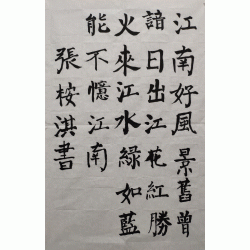 江南好風景舊曾
諳日出江花紅勝
火來江水綠如藍
能不憶江南
張桉淇書